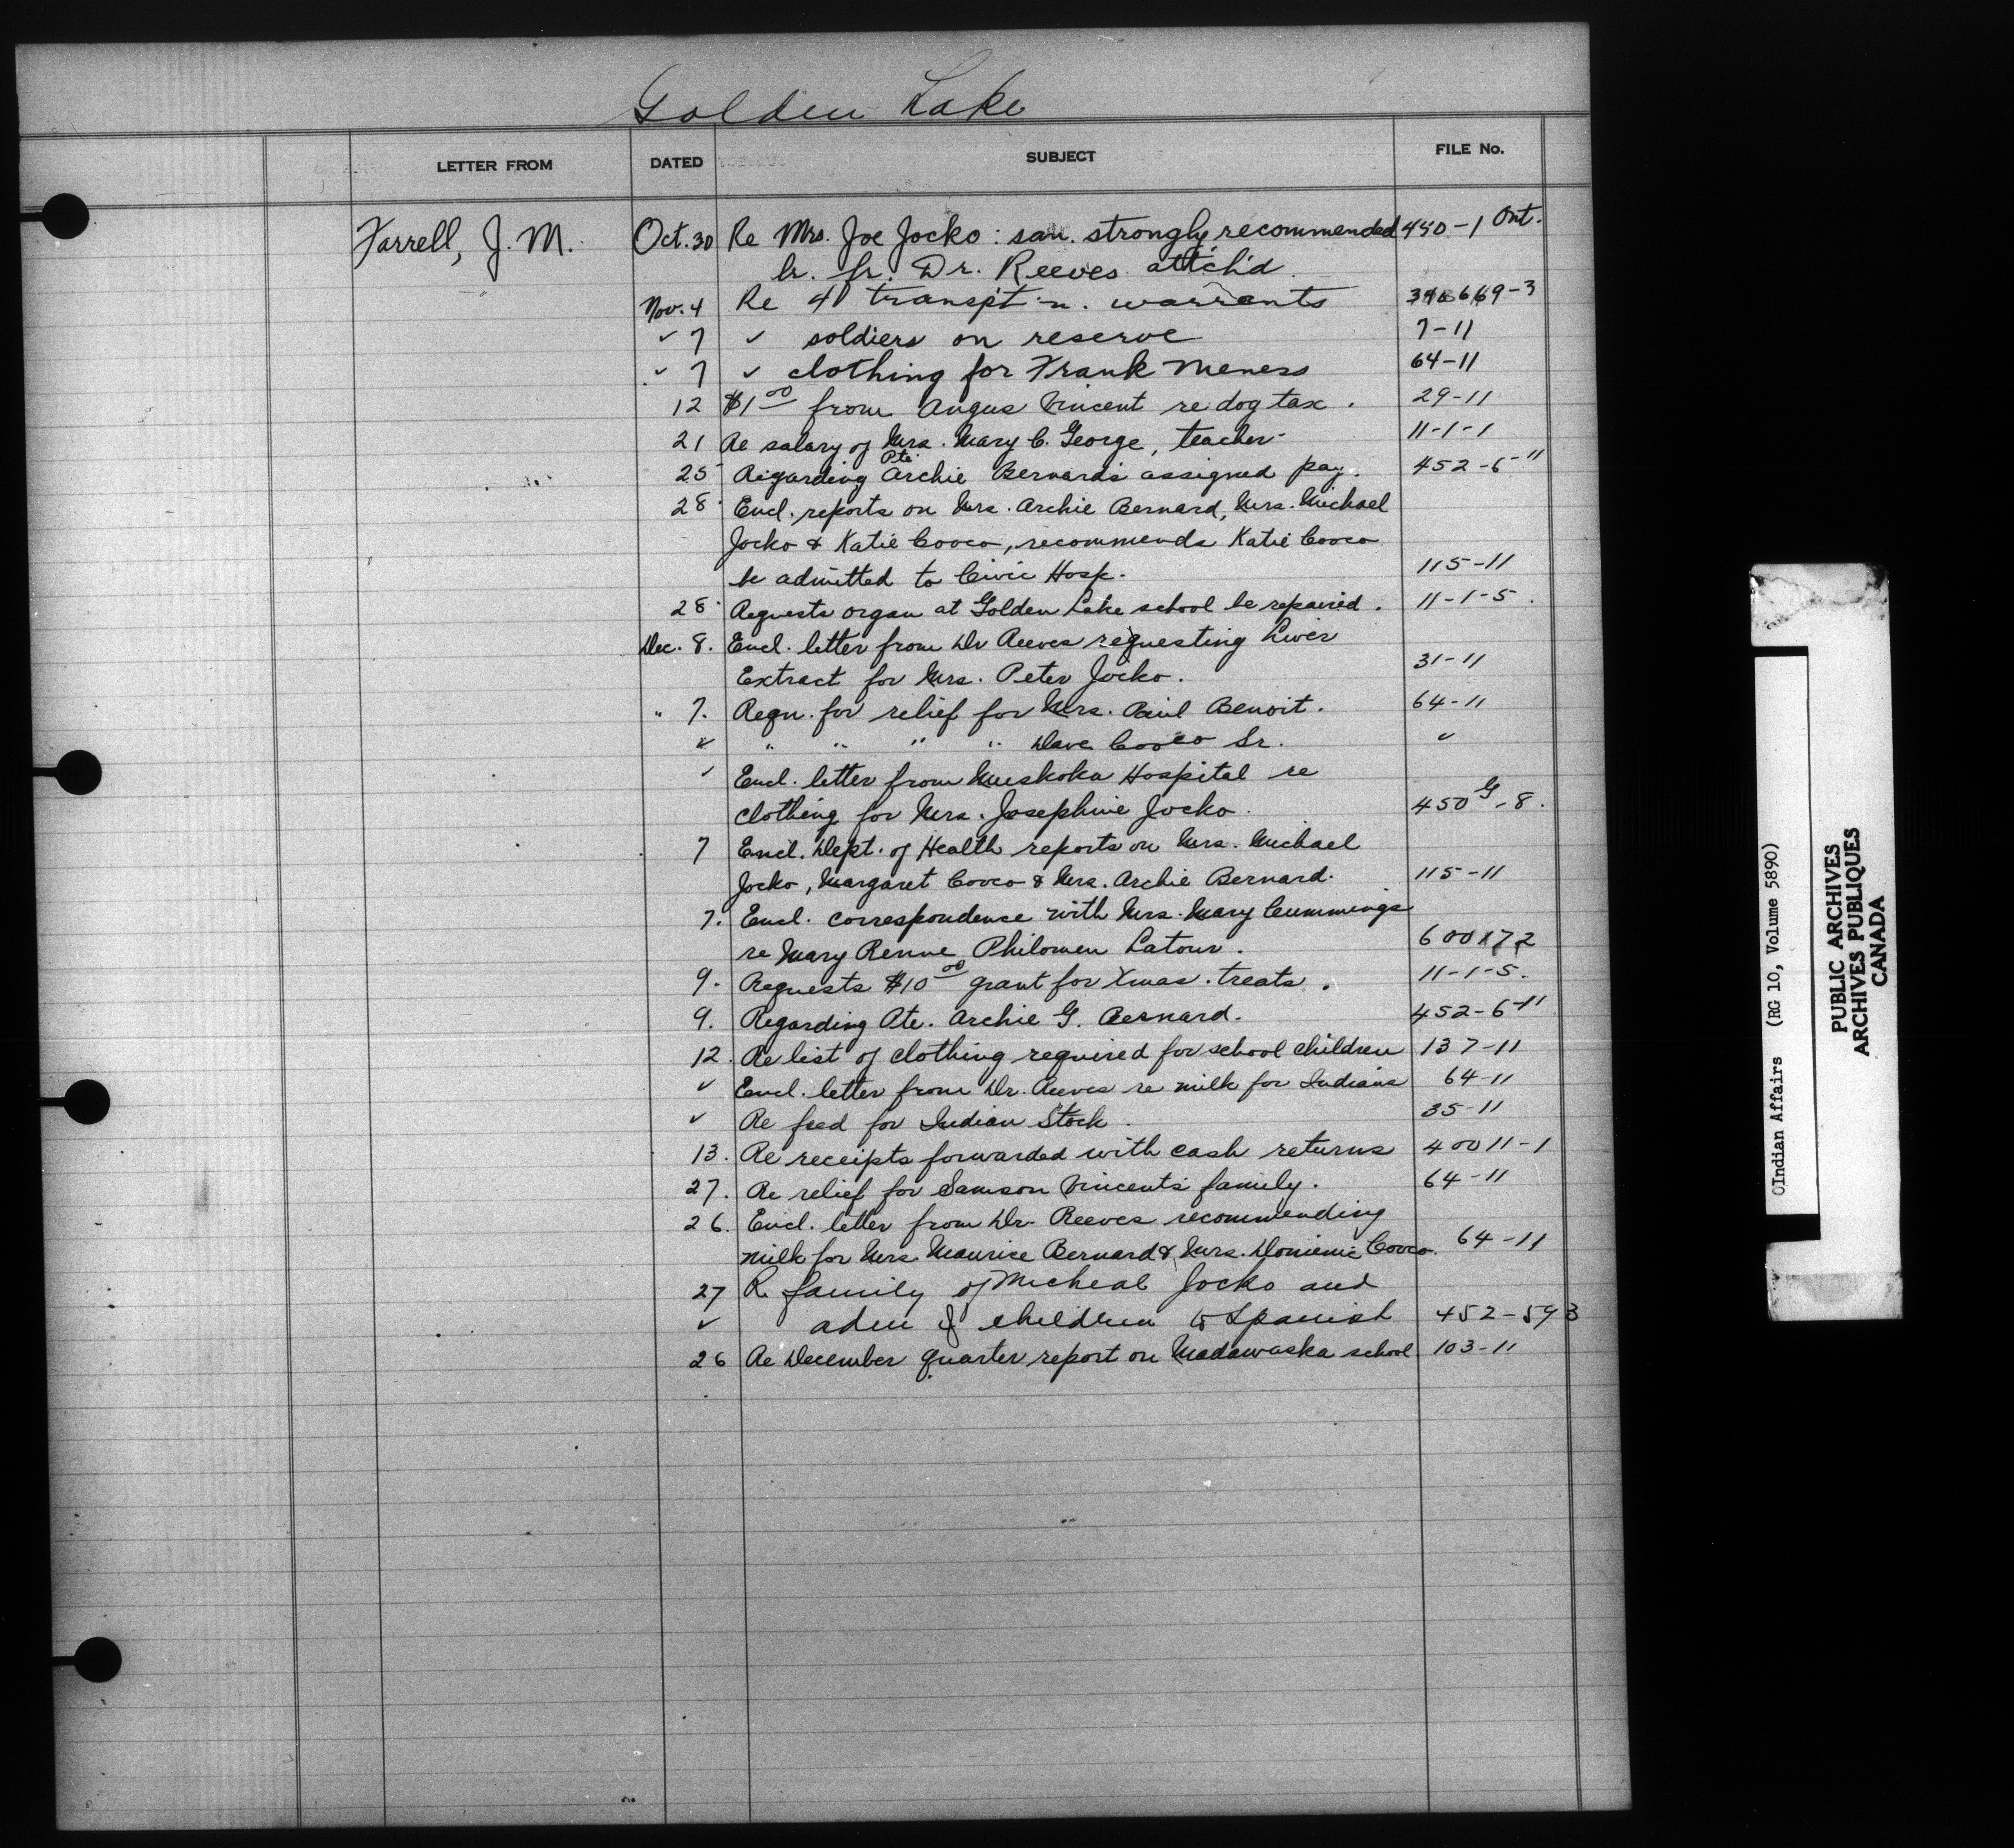 Golden Lake
LETTER FROM DATED SUBJECT FILE No.
Farrell, J. M. Oct. 30 Re Mrs. Joe Jocko : san. strongly recommended 450-1 Ont.
lr. fr. Dr. Reeves attch'd.
Nov. 4 Re transp't'n. warrants
✓ 7 ✓ soldiers on reserve 7-11
✓ 7 ✓ clothing for Frank Meness 64-11
12 $1 00 from Angus Vincent re dog tax. 29-11
21 Re salary of Mrs. Mary C. George, teacher 11-1-1
25 Regarding Pte. Archie Bernard's assigned pay. 452-6-11
28 Encl. reports on Mrs. Archie Bernard, Mrs. Michael
Jocko & Katie Cooco, recommends Katie Cooco
be admitted to Civic Hosp. 115-11
28 Requests organ at Golden Lake school be repaired. 11-1-5.
Dec. 8. Encl. letter from Dr Reeves requesting Liver
Extract for Mrs. Peter Jocko. 31-11
" 7. Reqn. for relief for Mrs. Paul Benoit. 64-11
✓ " " " " Dave Cooco Sr. ✓
✓ Encl. letter from Muskoka Hospital re
clothing for Mrs. Josephine Jocko. 450 G-8.
7 Encl. Dept. of Health reports on Mrs. Michael
Jocko, Margaret Cooco & Mrs. Archie Bernard. 115-11
7. Encl. correspondence with Mrs. Mary Cummings
re Mary Renne Philomen Latour.
9. Requests $10 00 grant for Xmas. treats. 11-1-5.
9. Regarding Pte. Archie G. Bernard. 452-6-11
12. Re list of clothing required for school children 137-11
✓ Encl. letter from Dr. Reeves re milk for Indians 64-11
✓ Re feed for Indian Stock. 35-11
13. Re receipts forwarded with cash returns 40011-1
27. Re relief for Samson Vincent's family. 64-11
26. Encl. letter from Dr. Reeves recommending
milk for Mrs. Maurice Bernard & Mrs. Dominic Cooco. 64-11
27 Re family of Micheal Jocko and
✓ adm of children to Spanish 452-593
26 Re December quarter report on Madawaska school. 103-11
(Indian Affairs (RG 10, Volume 5890)
PUBLIC ARCHIVES
ARCHIVES PUBLIQUES
CANADA